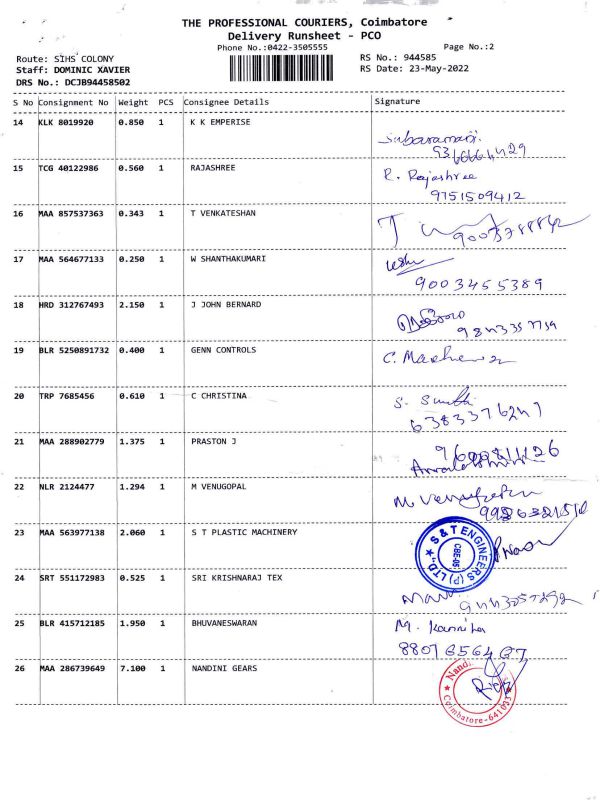 THE PROFESSIONAL COURIERS, Coimbatore
Delivery Runsheet - PCO
Phone No.:0422-3505555
Page No.:2
Route: SIHS COLONY
RS No.: 944585
Staff: DOMINIC XAVIER
RS Date: 23-May-2022
DRS No.: DCJB94458502
S No Consignment No Weight PCS Consignee Details Signature
14 KLK 8019920 0.850 1 K K EMPERISE
15 TCG 40122986 0.560 1 RAJASHREE R. Rajashree
9751509412
16 MAA 857537363 0.343 1 T VENKATESHAN
17 MAA 564677133 0.250 1 W SHANTHAKUMARI
9003455389
18 HRD 312767493 2.150 1 J JOHN BERNARD
19 BLR 5250891732 0.400 1 GENN CONTROLS
20 TRP 7685456 0.610 1 C CHRISTINA
21 MAA 288902779 1.375 1 PRASTON J
22 NLR 2124477 1.294 1 M VENUGOPAL
23 MAA 563977138 2.060 1 S T PLASTIC MACHINERY
S & T ENGINEERS (P) LTD.,
CBE-05
24 SRT 551172983 0.525 1 SRI KRISHNARAJ TEX
25 BLR 415712185 1.950 1 BHUVANESWARAN
26 MAA 286739649 7.100 1 NANDINI GEARS
Coimbatore-641033